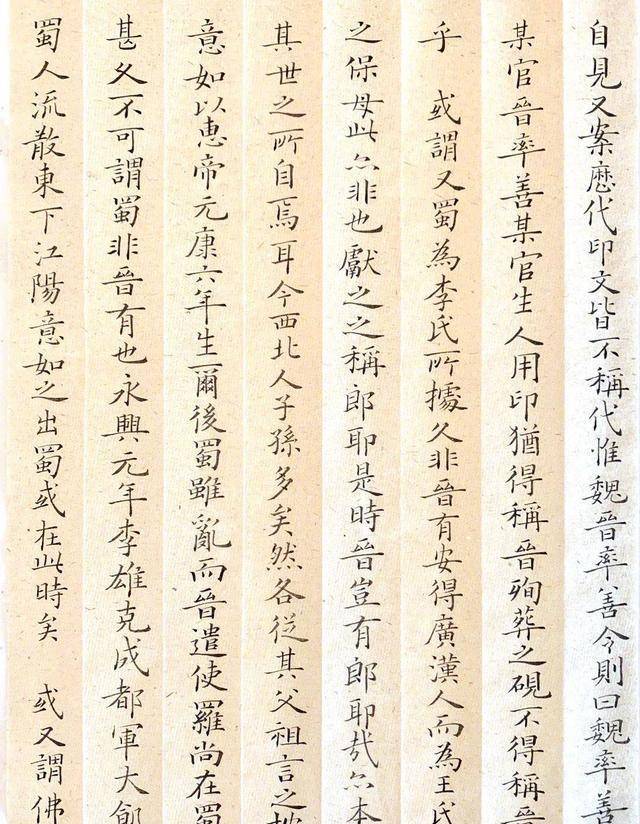 自見又案歷代印文皆不稱代惟魏晉率善令則曰魏率善
某官晉率善某官生人用印猶得稱晉殉葬之硯不得稱晉
乎 或謂又蜀為李氏所據久非晉有安得廣漢人而為王氏
之保母此亦非也獻之之稱郎耶是時晉豈有郎耶哉亦本
其世之所自焉耳今西北人子孫多矣然各從其父祖言之
意如以惠帝元康六年生爾後蜀雖亂而晉遣使羅尚在蜀
甚久不可謂蜀非晉有也永興元年李雄克成都軍大餓
蜀人流散東下江陽意如之出蜀或在此時矣 或又謂佛